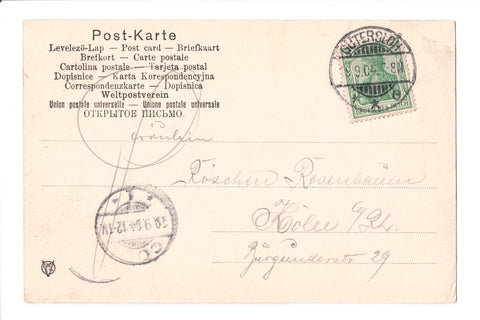 Post-Karte
Levelező-Lap — Post card — Briefkaart
Bretkort — Carte postale
Cartolina postale — Tarjeta postal
Dopisnice — Karta Korespondencyjna
Correspondenzkarte — Dopisnica
Weltpostverein
Union postale universelle — Unione postale universale
ОТКРЫТОЕ ПИСЬМО.
GÜTERSLOH
9.04. 8N
Fräulein
Röschen Rosenbaum
Köln a/Rh.
Burgunderstr 29
20.9.04.12-1N